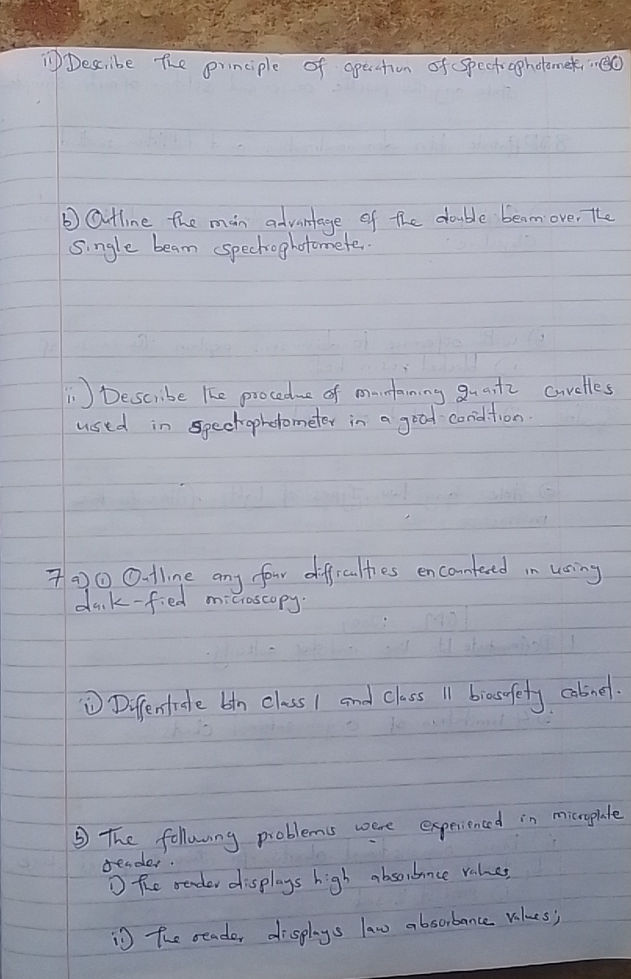 ii) Describe the principle of operation of spectrophotometer
b) Outline the main advantage of the double beam over the
single beam spectrophotometer.
ii) Describe the procedue of maintaining quartz cuvettes
used in spectrophotometer in a good condition.
7 a) i) Outline any four difficulties encountered in using
dark-fied microscopy.
ii) Differntiate btn class I and class II biosafety cabinet.
b) The following problems were experienced in microplate
reader.
i) The reader displays high absorbance values
ii) The reader displays law absorbance values;